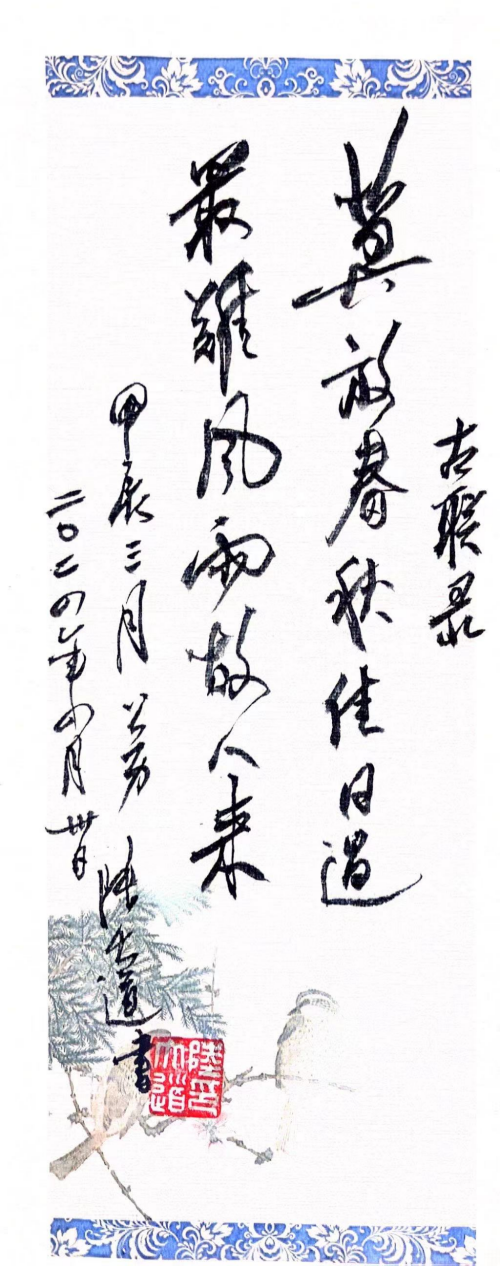 古联录
莫放春秋佳日過
最難风雨故人来
甲辰三月
陸大道書
二〇二四年四月卅日
陸大道印